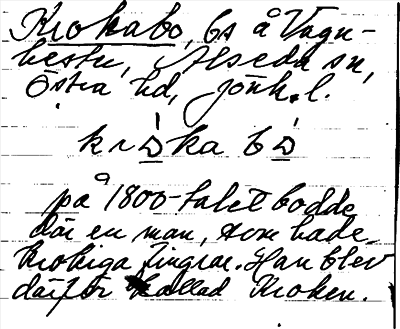 Krokabo, bs å Vagn-
hester, Alseda sn,
Östra hd, Jönk. l.
krɷ̀ka bɷ́
på 1800-talet bodde
där en man, som hade
krokiga fingrar. Han blev
därför kallad Kroken.